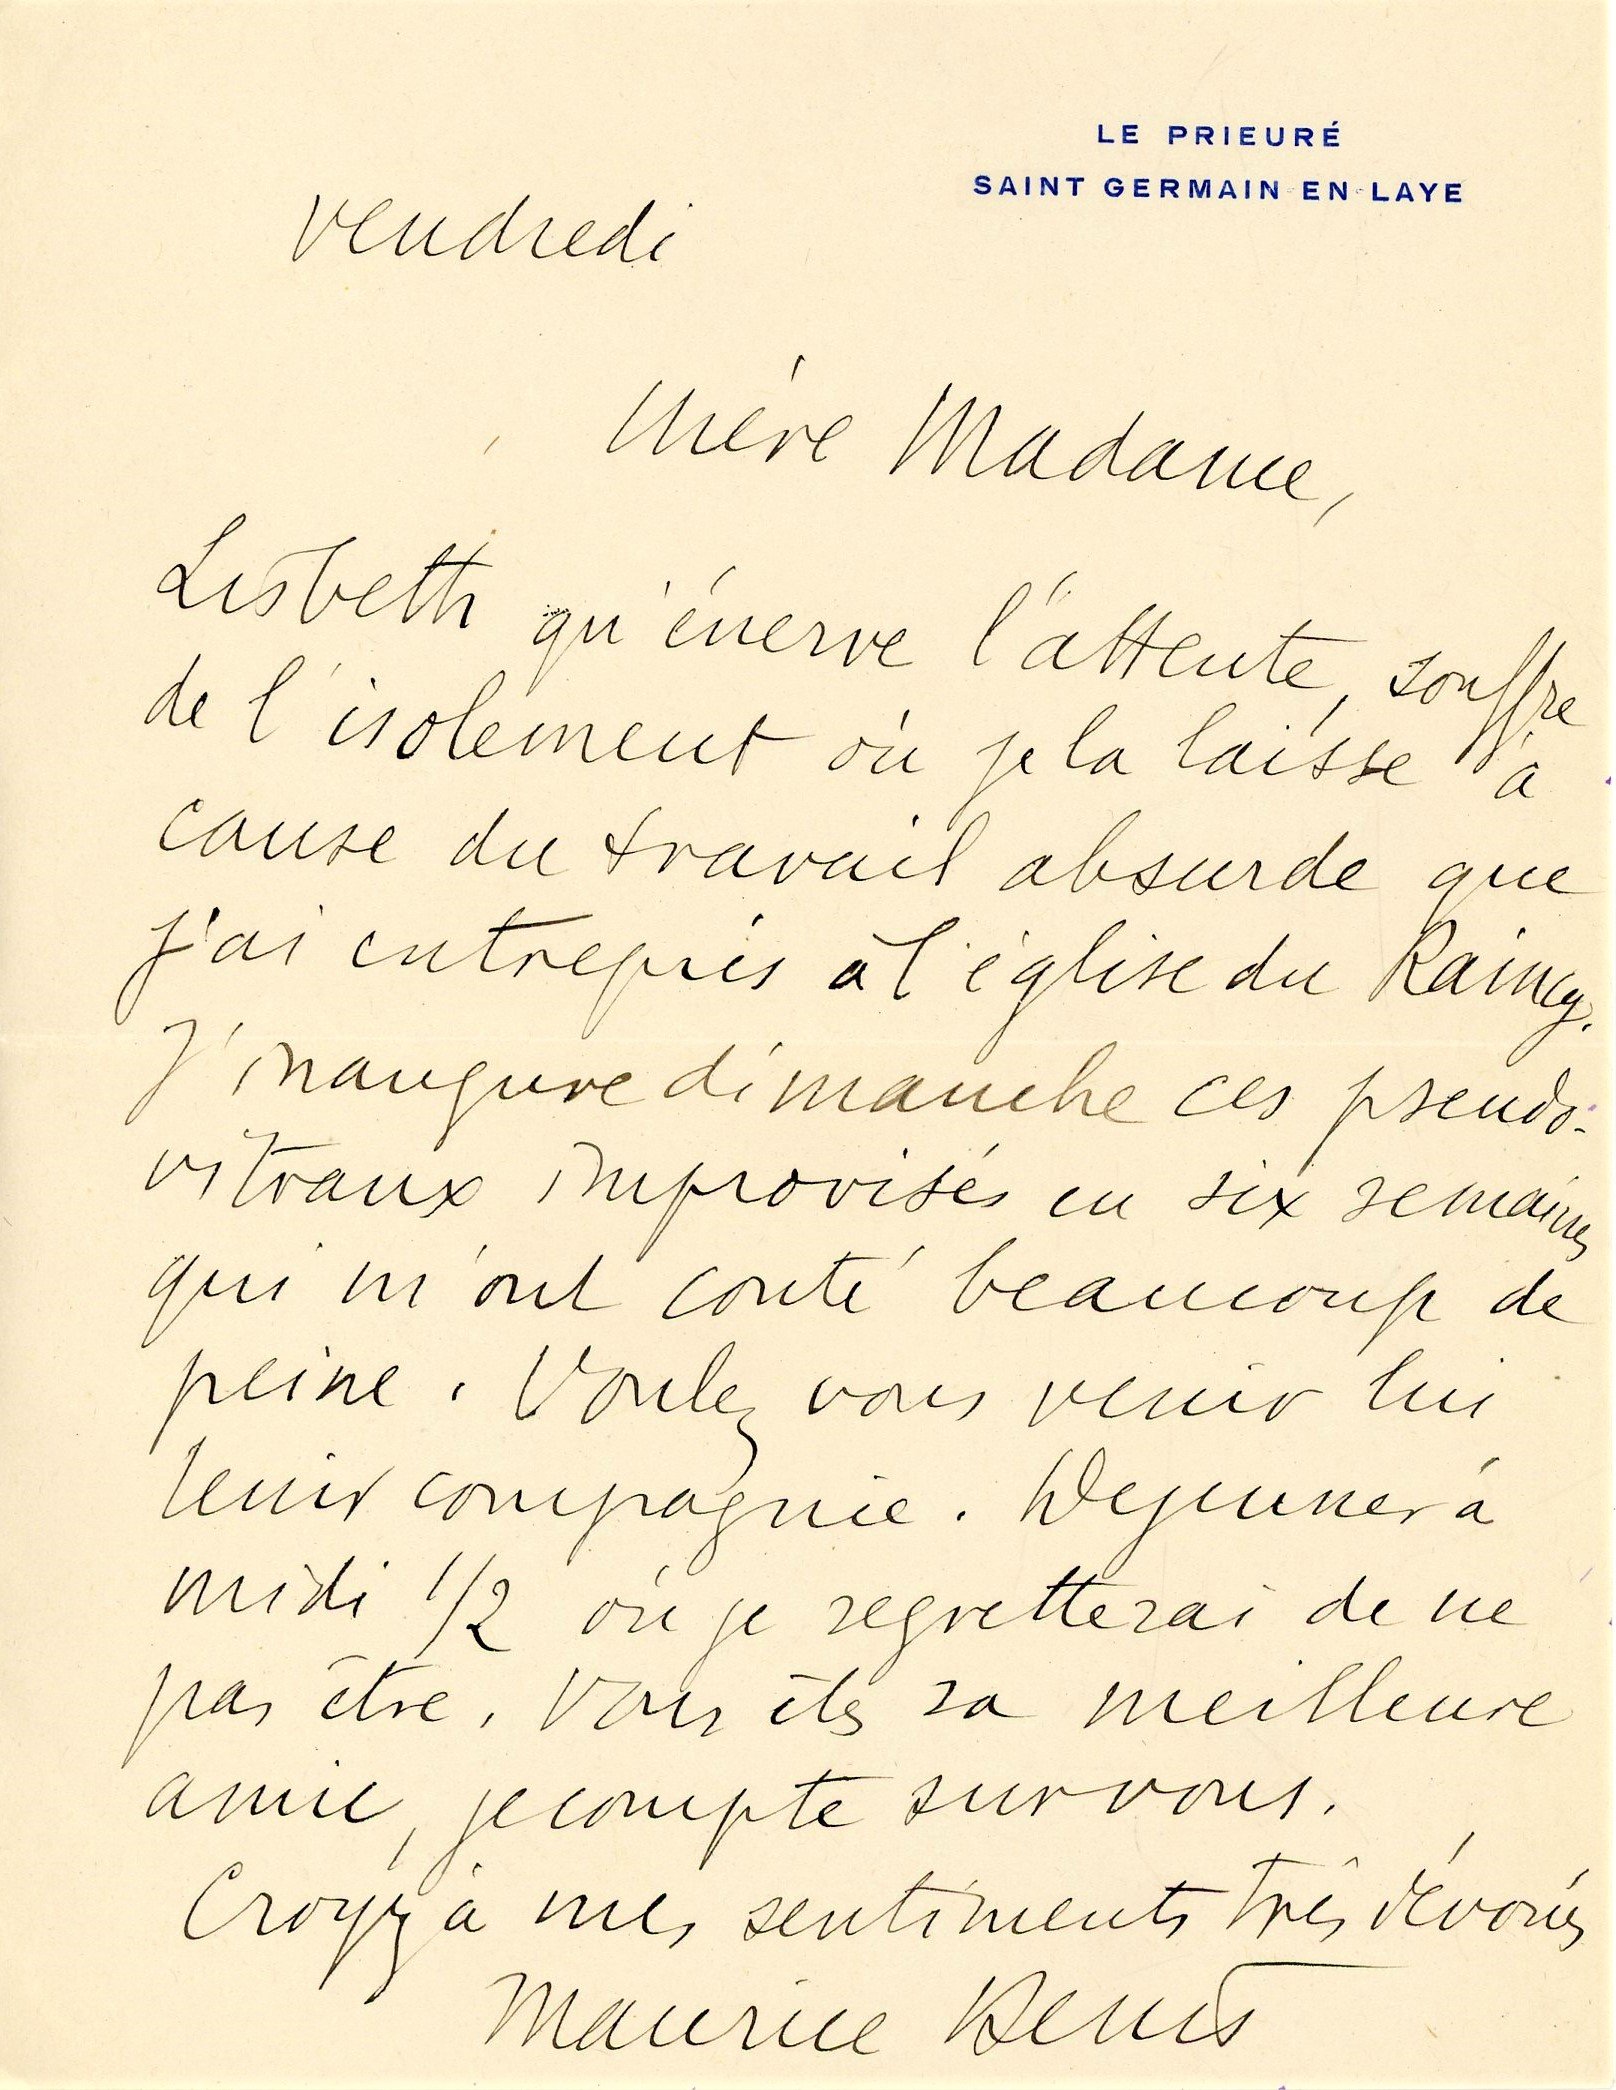 LE PRIEURÉ
SAINT GERMAIN-EN-LAYE
Vendredi
Chère Madame,
Lisbeth qu'énerve l'attente, souffre
de l'isolement où je la laisse à
cause du travail absurde que
j'ai entrepris à l'église du Raincy.
J'inaugure dimanche ces pseudo-
vitraux improvisés en six semaines
qui m'ont couté beaucoup de
peine. Voulez vous venir lui
tenir compagnie. Dejeuner à
midi 1/2 où je regretterai de ne
pas être. Vous êtes sa meilleure
amie, je compte sur vous.
Croyez à mes sentiments très dévoués
Maurice Denis